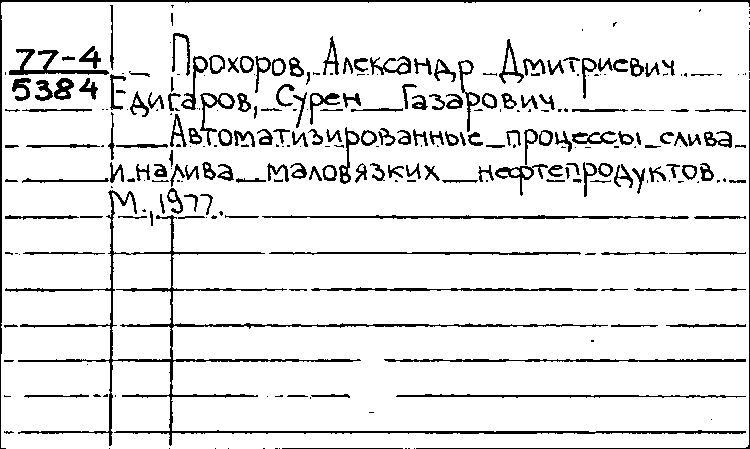 77-4 Прохоров, Александр Дмитриевич
5384 Едигаров, Сурен Газарович
Автоматизированные процессы слива
и налива маловязких нефтепродуктов
М., 1977.